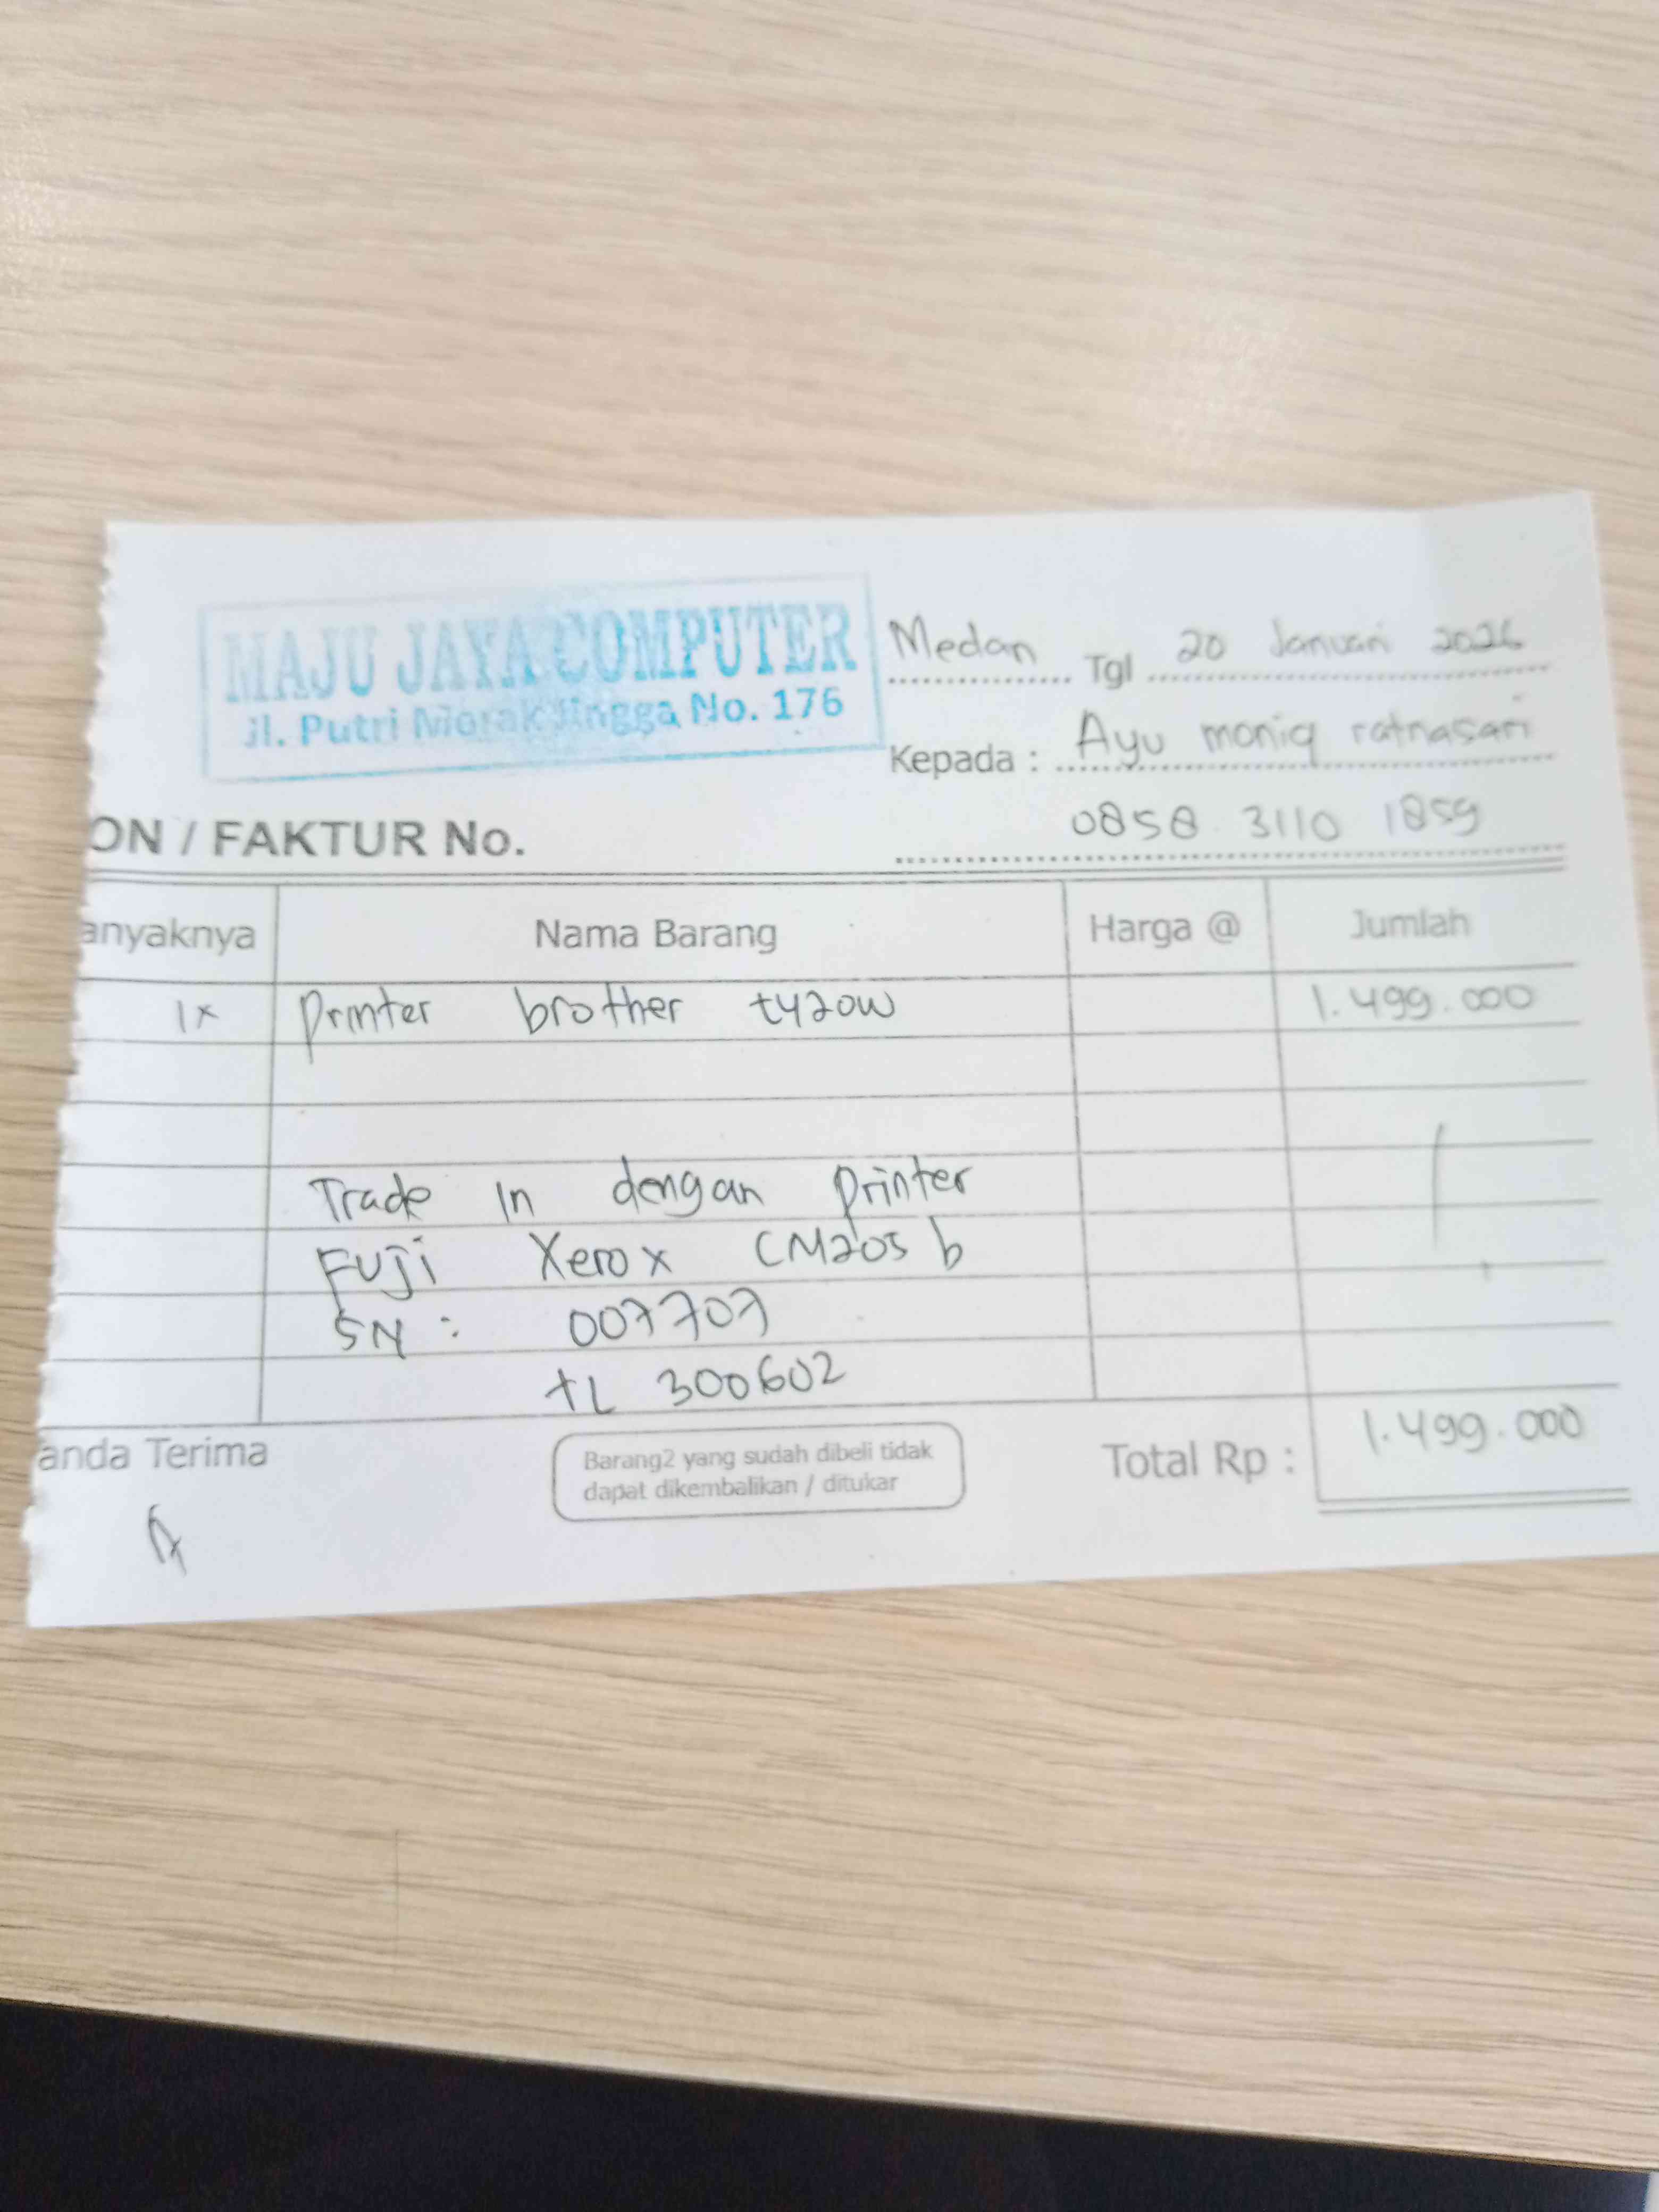 MAJU JAYA COMPUTER
jl. Putri Merak Jingga No. 176
Medan Tgl 20 Januari 2026
Kepada : Ayu moniq ratnasari
0858 3110 1859
ON / FAKTUR No.
anyaknya Nama Barang Harga @ Jumlah
1x Printer brother t420w 1.499.000
Trade In dengan printer
FUJi Xerox CM205 b
SN : 007707
TL 300602
anda Terima
Barang2 yang sudah dibeli tidak
dapat dikembalikan / ditukar
Total Rp : 1.499.000